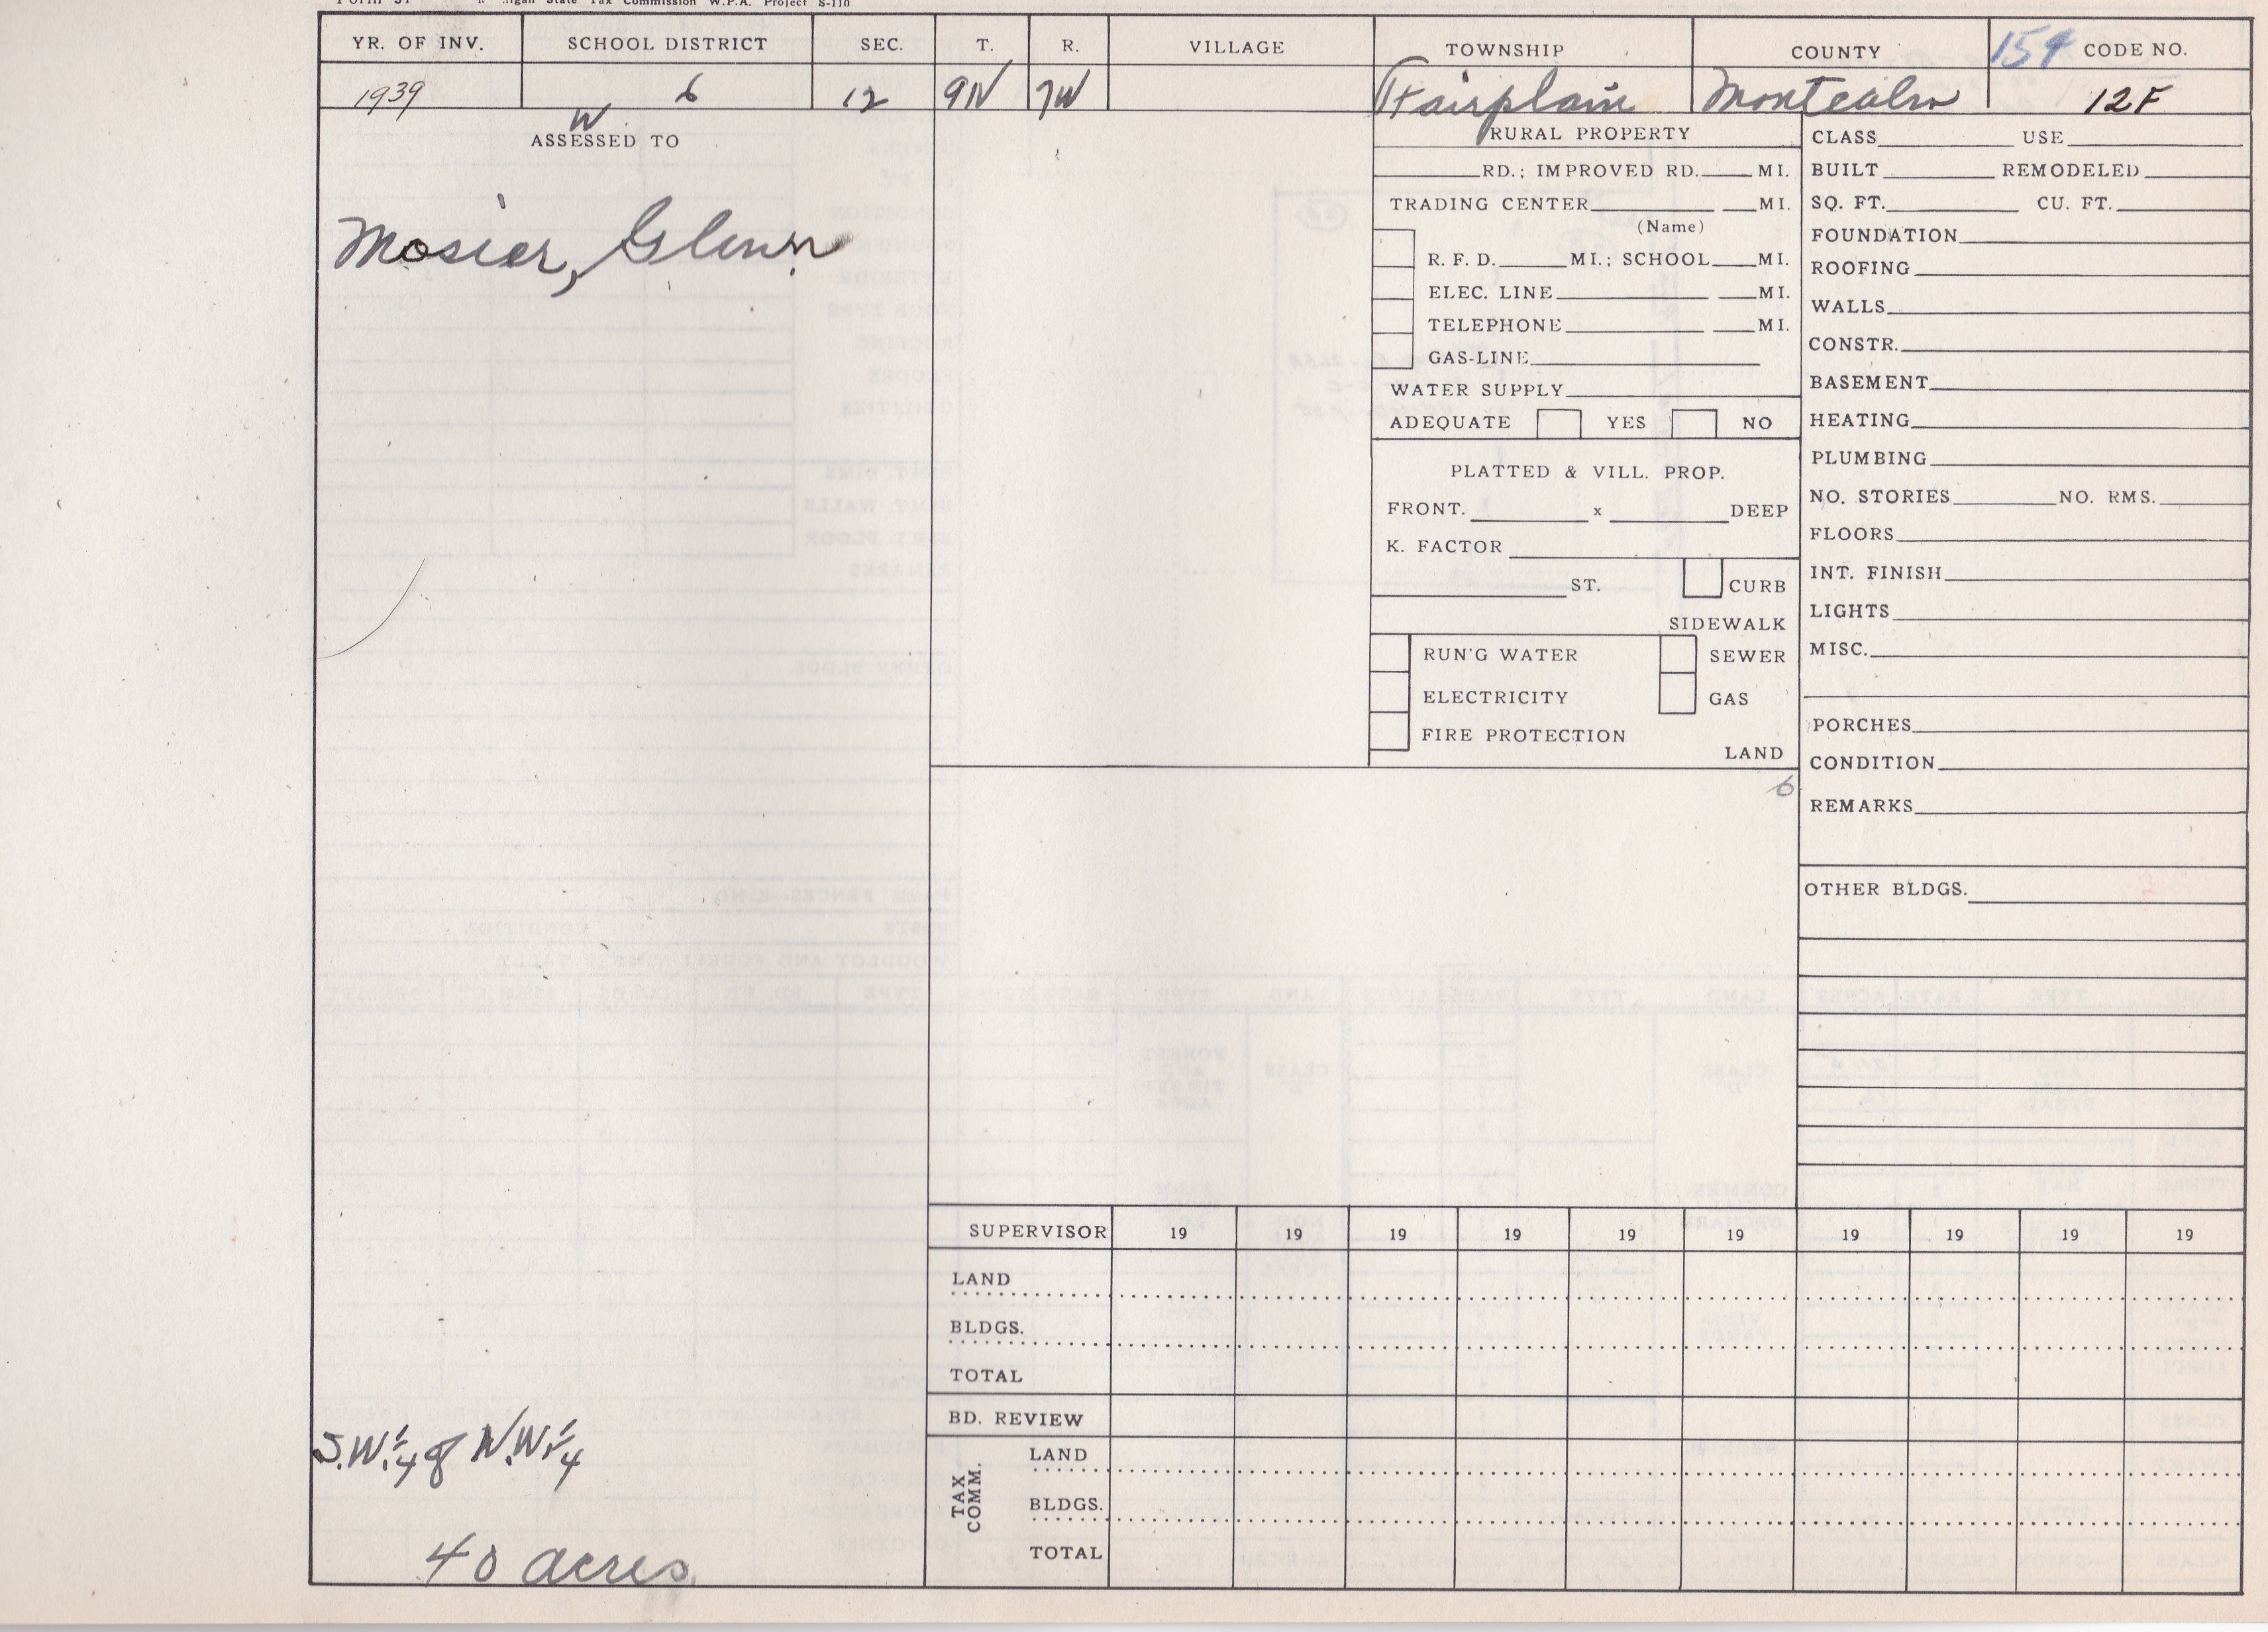 Michigan State Tax Commission W.P.A. Project S-110
YR. OF INV. SCHOOL DISTRICT SEC. T. R. VILLAGE TOWNSHIP COUNTY CODE NO.
1939 6 12 9N 7W Fairplain Montcalm 12F
W
ASSESSED TO
Mosier, Glenn
RURAL PROPERTY
RD.; IMPROVED RD. MI.
TRADING CENTER MI.
(Name)
R. F. D. MI.; SCHOOL MI.
ELEC. LINE MI.
TELEPHONE MI.
GAS-LINE
WATER SUPPLY
ADEQUATE YES NO
PLATTED & VILL. PROP.
FRONT. x DEEP
K. FACTOR
ST. CURB
SIDEWALK
RUN'G WATER SEWER
ELECTRICITY GAS
FIRE PROTECTION
LAND
6
CLASS USE
BUILT REMODELED
SQ. FT. CU. FT.
FOUNDATION
ROOFING
WALLS
CONSTR.
BASEMENT
HEATING
PLUMBING
NO. STORIES NO. RMS.
FLOORS
INT. FINISH
LIGHTS
MISC.
PORCHES
CONDITION
REMARKS
OTHER BLDGS.
SUPERVISOR 19 19 19 19 19 19 19 19 19 19
LAND
BLDGS.
TOTAL
BD. REVIEW
TAX COMM.
LAND
BLDGS.
TOTAL
S.W.¼ of N.W.¼
40 acres